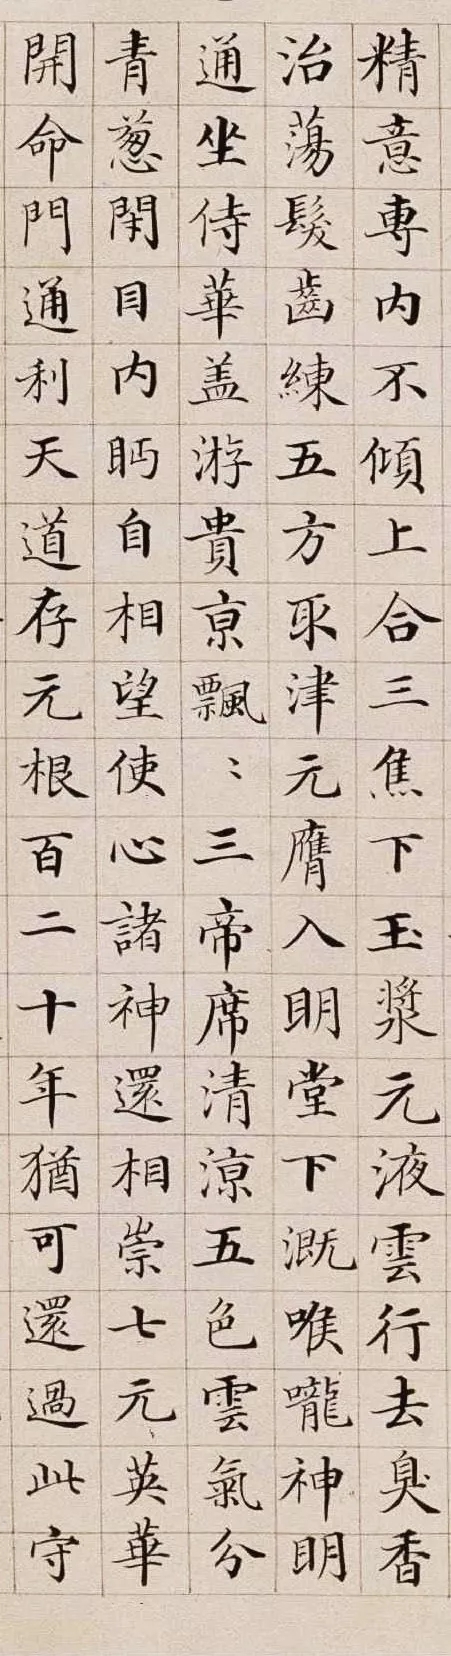 精意專內不傾上合三焦下玉漿元液雲行去臭香
治蕩髮齒練五方取津元膺入明堂下溉喉嚨神明
通坐侍華盖游貴亰飄〻三帝席清涼五色雲氣分
青葱閑目内眄自相望使心諸神還相崇七元英華
開命門通利天道存元根百二十年猶可還過此守